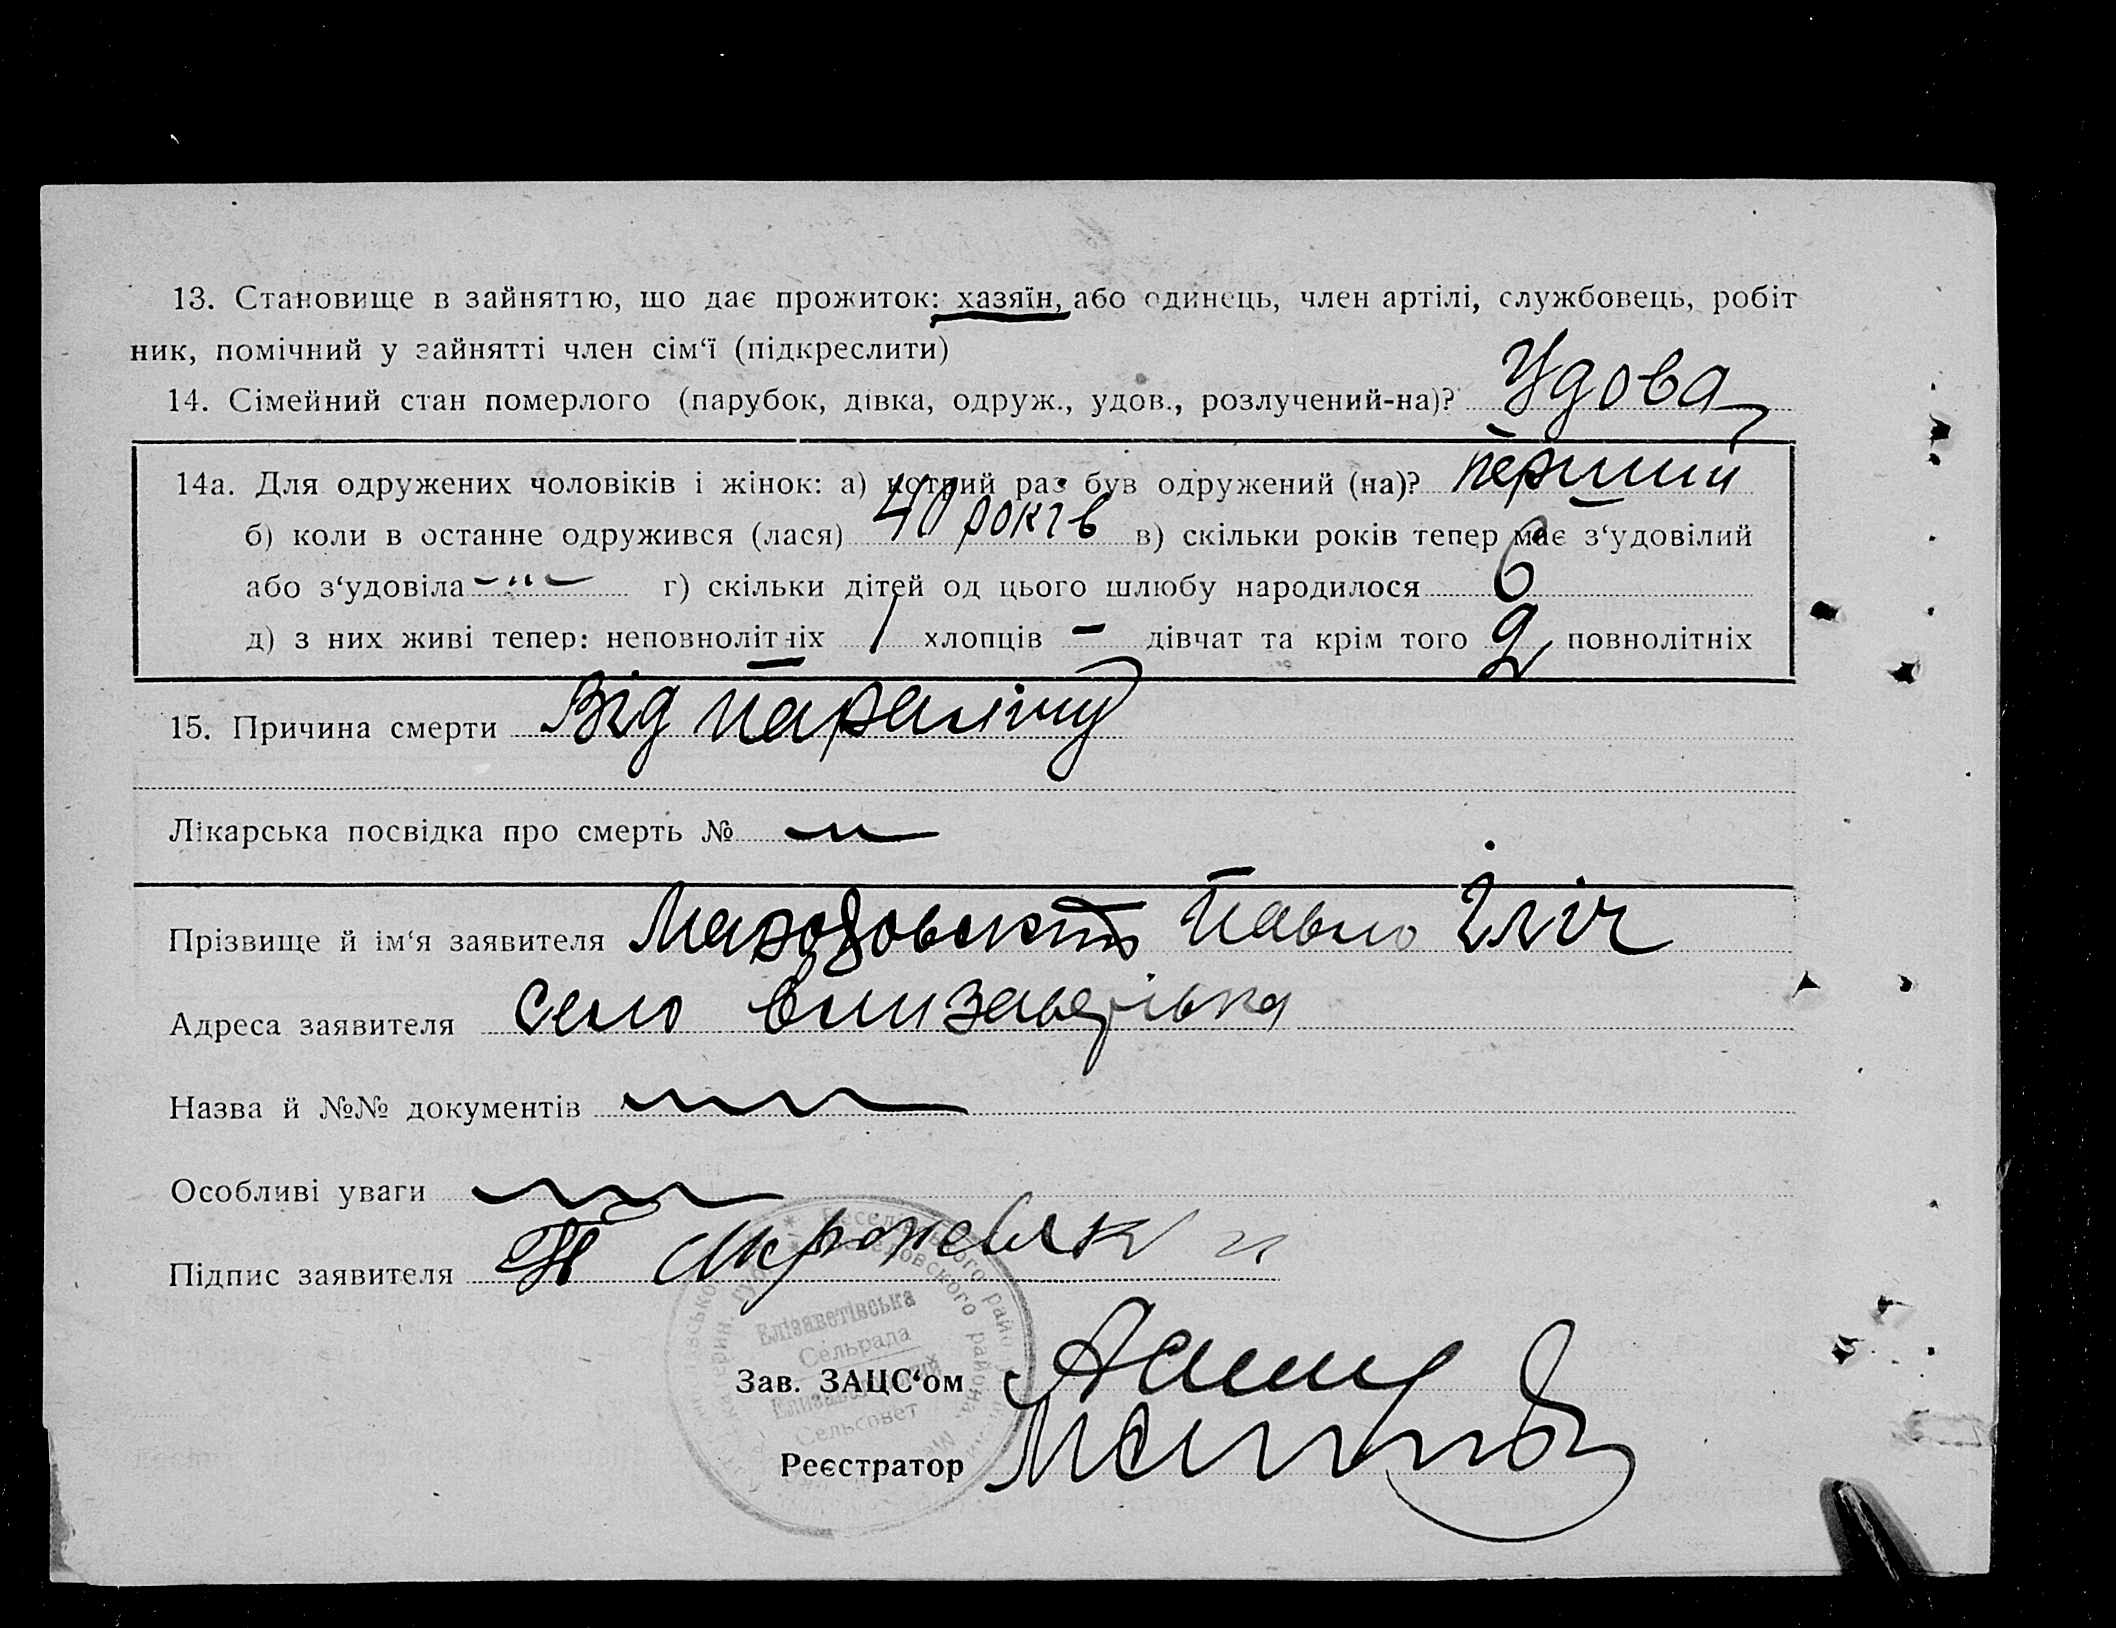 13. Становище в зайняттю, що дає прожиток: хазяїн, або одинець, член артілі, службовець, робіт
ник, помічний у зайнятті член сім‘ї (підкреслити)
14. Сімейний стан померлого (парубок, дівка, одруж., удов., розлучений-на)? Удова
14а. Для одружених чоловіків і жінок: а) котрий раз був одружений (на)? перший
б) коли в останне одружився (лася) 40 років в) скільки років тепер має з‘удовілий
або з‘удовіла —„— г) скільки дітей од цього шлюбу народилося 6
д) з них живі тепер: неповнолітніх 1 хлопців — дівчат та крім того 2 повнолітніх
15. Причина смерти Від паралічу
Лікарська посвідка про смерть №
Прізвище й ім‘я заявителя Павло Іліч
Адреса заявителя село Елизаветівка
Назва й №№ документів
Особливі уваги
Підпис заявителя
Елізаветівська
Сельрада
Зав. ЗАЦС‘ом
Сельсовет
Реєстратор